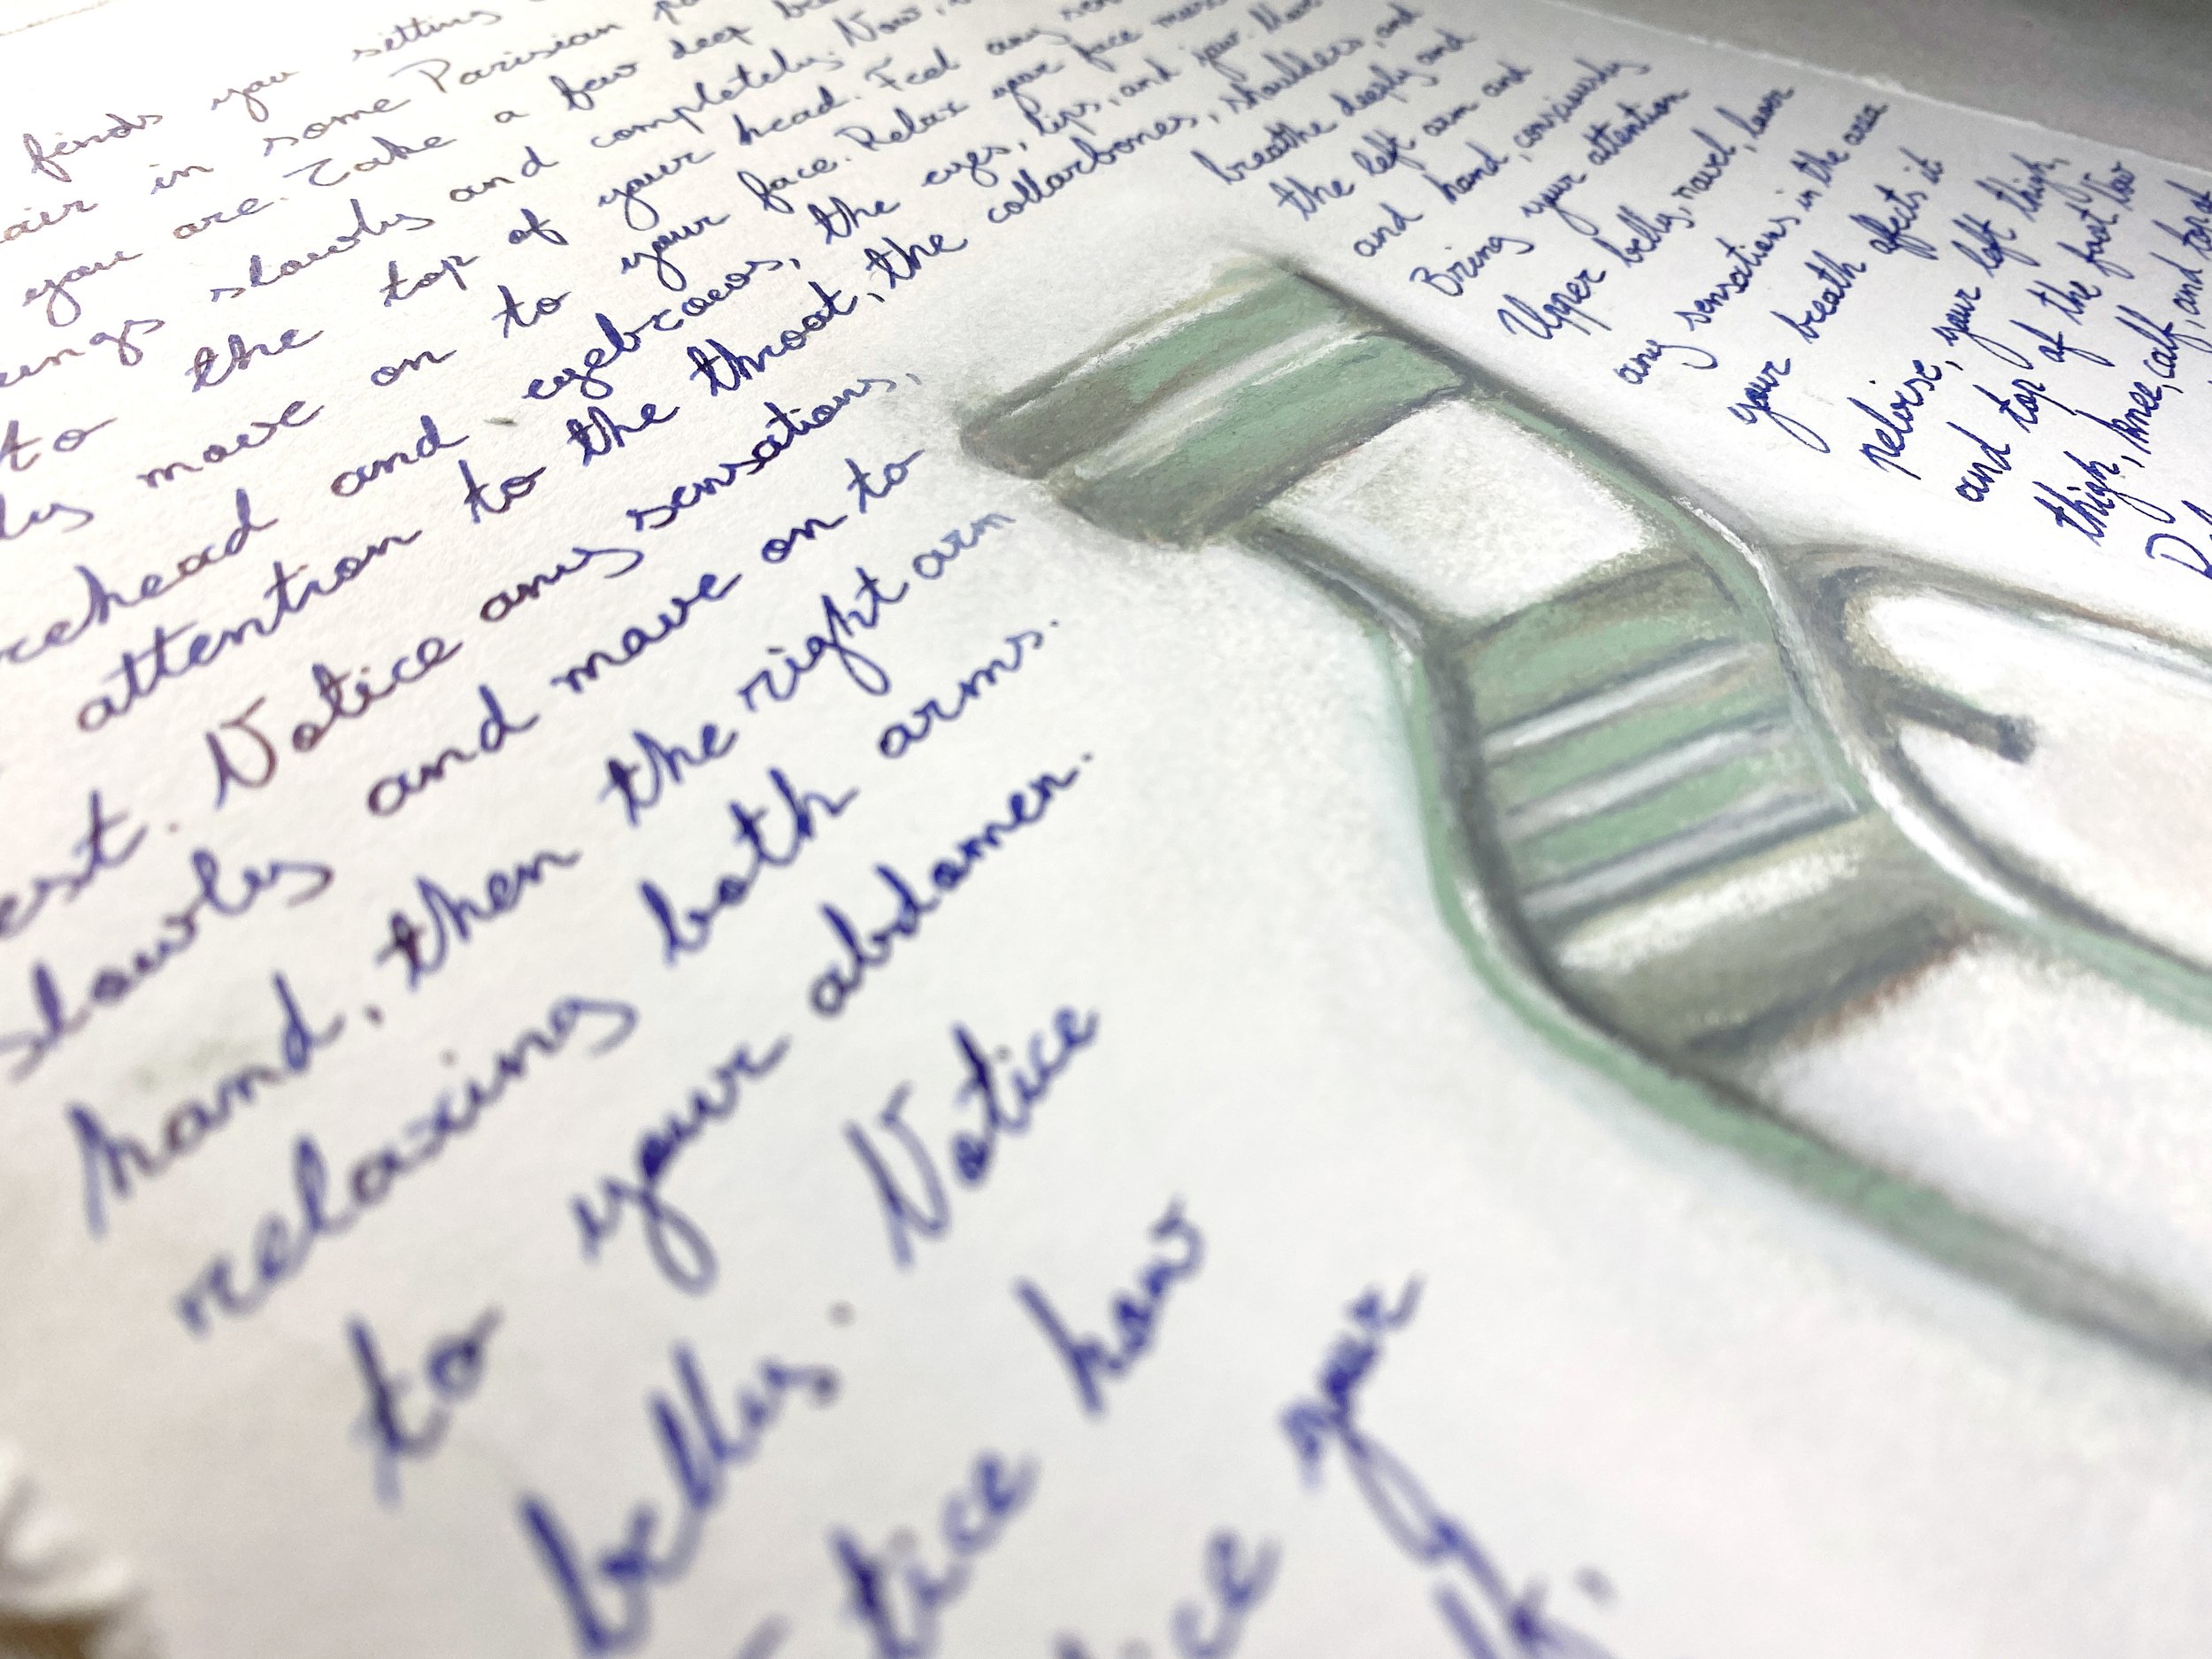 finds you setting
in some Parisian
you are. Take a few deep
slowly and completely. Now,
to the top of your head. Feel any
move on to your face. Relax your face
and eyebrows, the eyes, lips, and jaw.
attention to the throat, the collarbones, shoulders, and
Notice any sensations,
slowly and move on to
hand, then the right arm
relaxing both arms.
to your abdomen.
belly. Notice
how
your
breathe deeply and
the left arm and
and hand, consciously
Bring your attention
Upper belly, navel,
any sensations in the area
your breath affects it
your left thigh,
and top of the foot
thigh, knee, calf, and